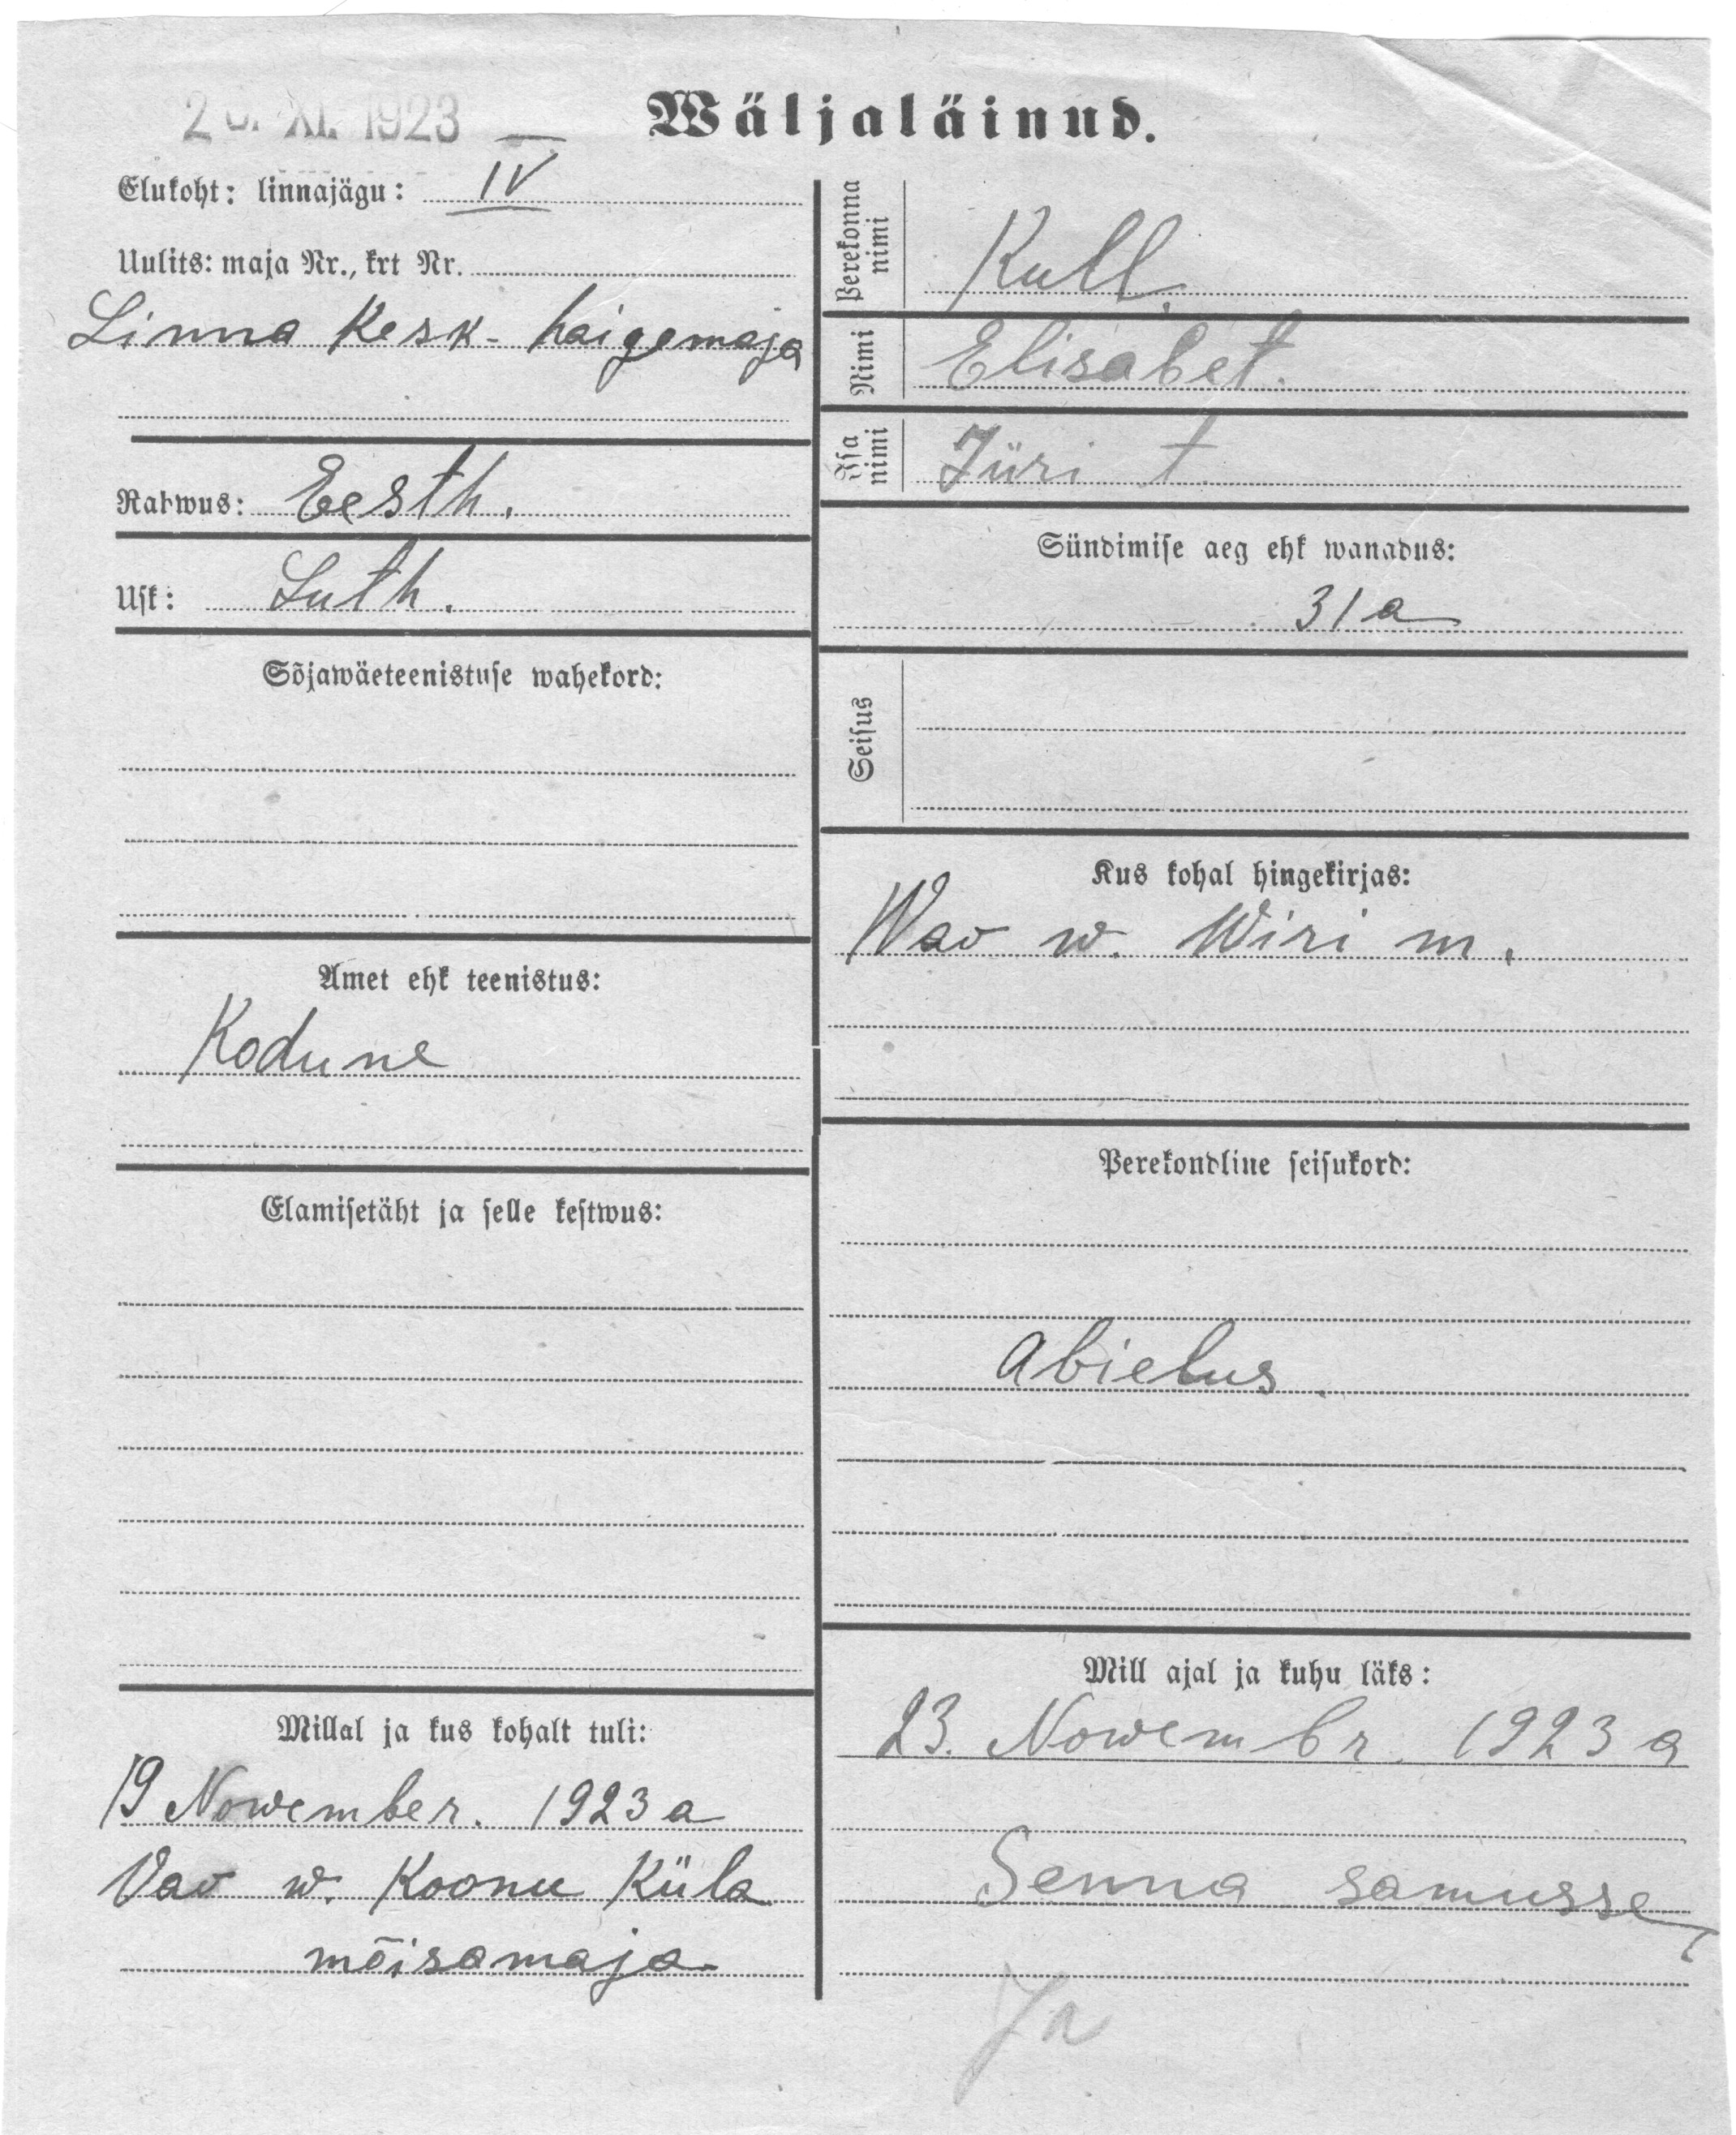 XI. 1923
Wäljaläinud.
Elukoht: linnajägu: IV
Uulits: maja Nr., krt Nr.
Linna Kesk-haigemaja
Rahwus: Eesth.
Usk: Luth.
Sõjawäeteenistuse wahekord:
Amet ehk teenistus:
Kodune
Elamisetäht ja selle kestwus:
Millal ja kus kohalt tuli:
19 Nowember. 1923 a
Vao w. Koonu Küla
mõisamaja
Perekonna nimi
Kull.
Nimi
Elisabet.
Isa nimi
Jüri t.
Sündimise aeg ehk wanadus:
31 a
Seisus
Kus kohal hingekirjas:
Wao w. Wiri m.
Perekondline seisukord:
Abielus.
Mill ajal ja kuhu läks:
23. Nowembr. 1923 a
Senna samusse
Ja